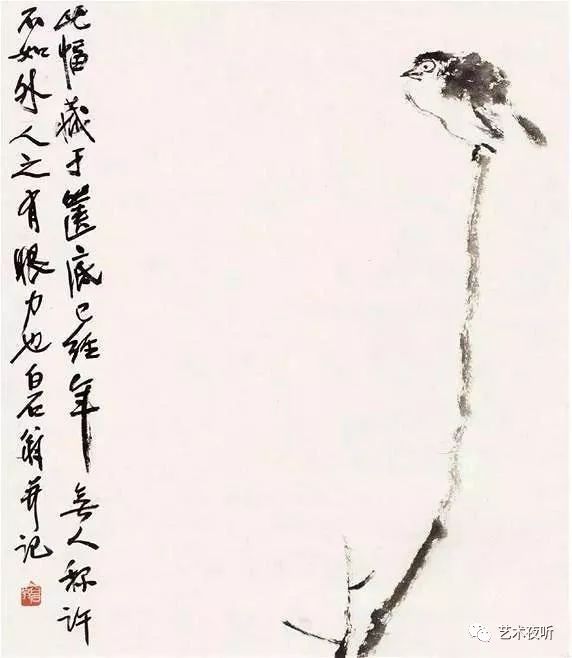 此幅藏于箧底已经年无人称许
不如外人之有眼力也白石翁并记
艺术夜听